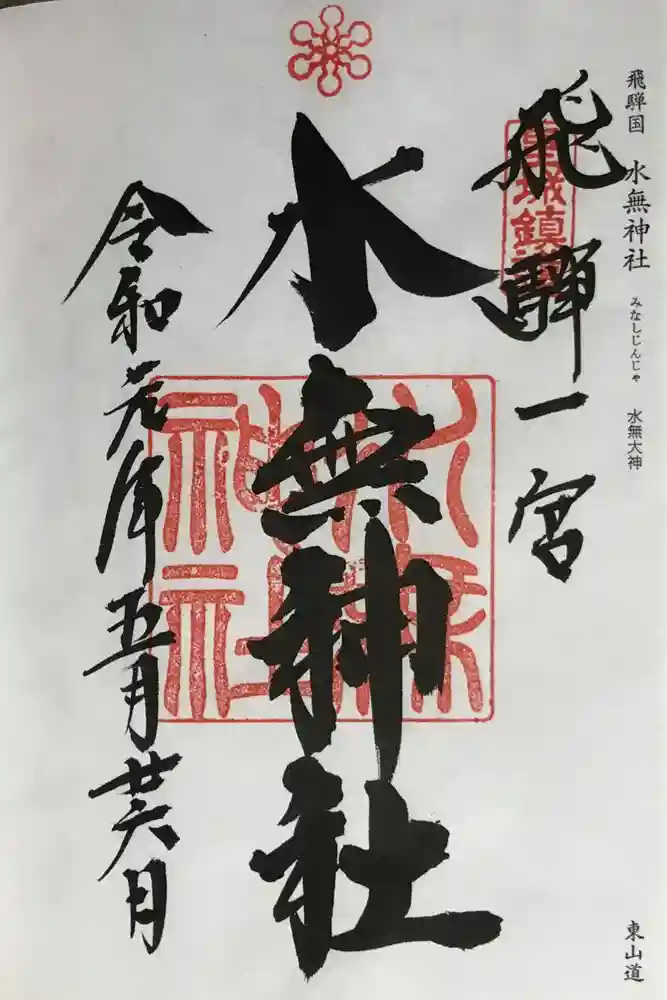 飛騨国 水無神社 みなしじんじゃ 水無大神
東山道
飛騨一宮
水無神社
令和元年五月廿六日
水無神社